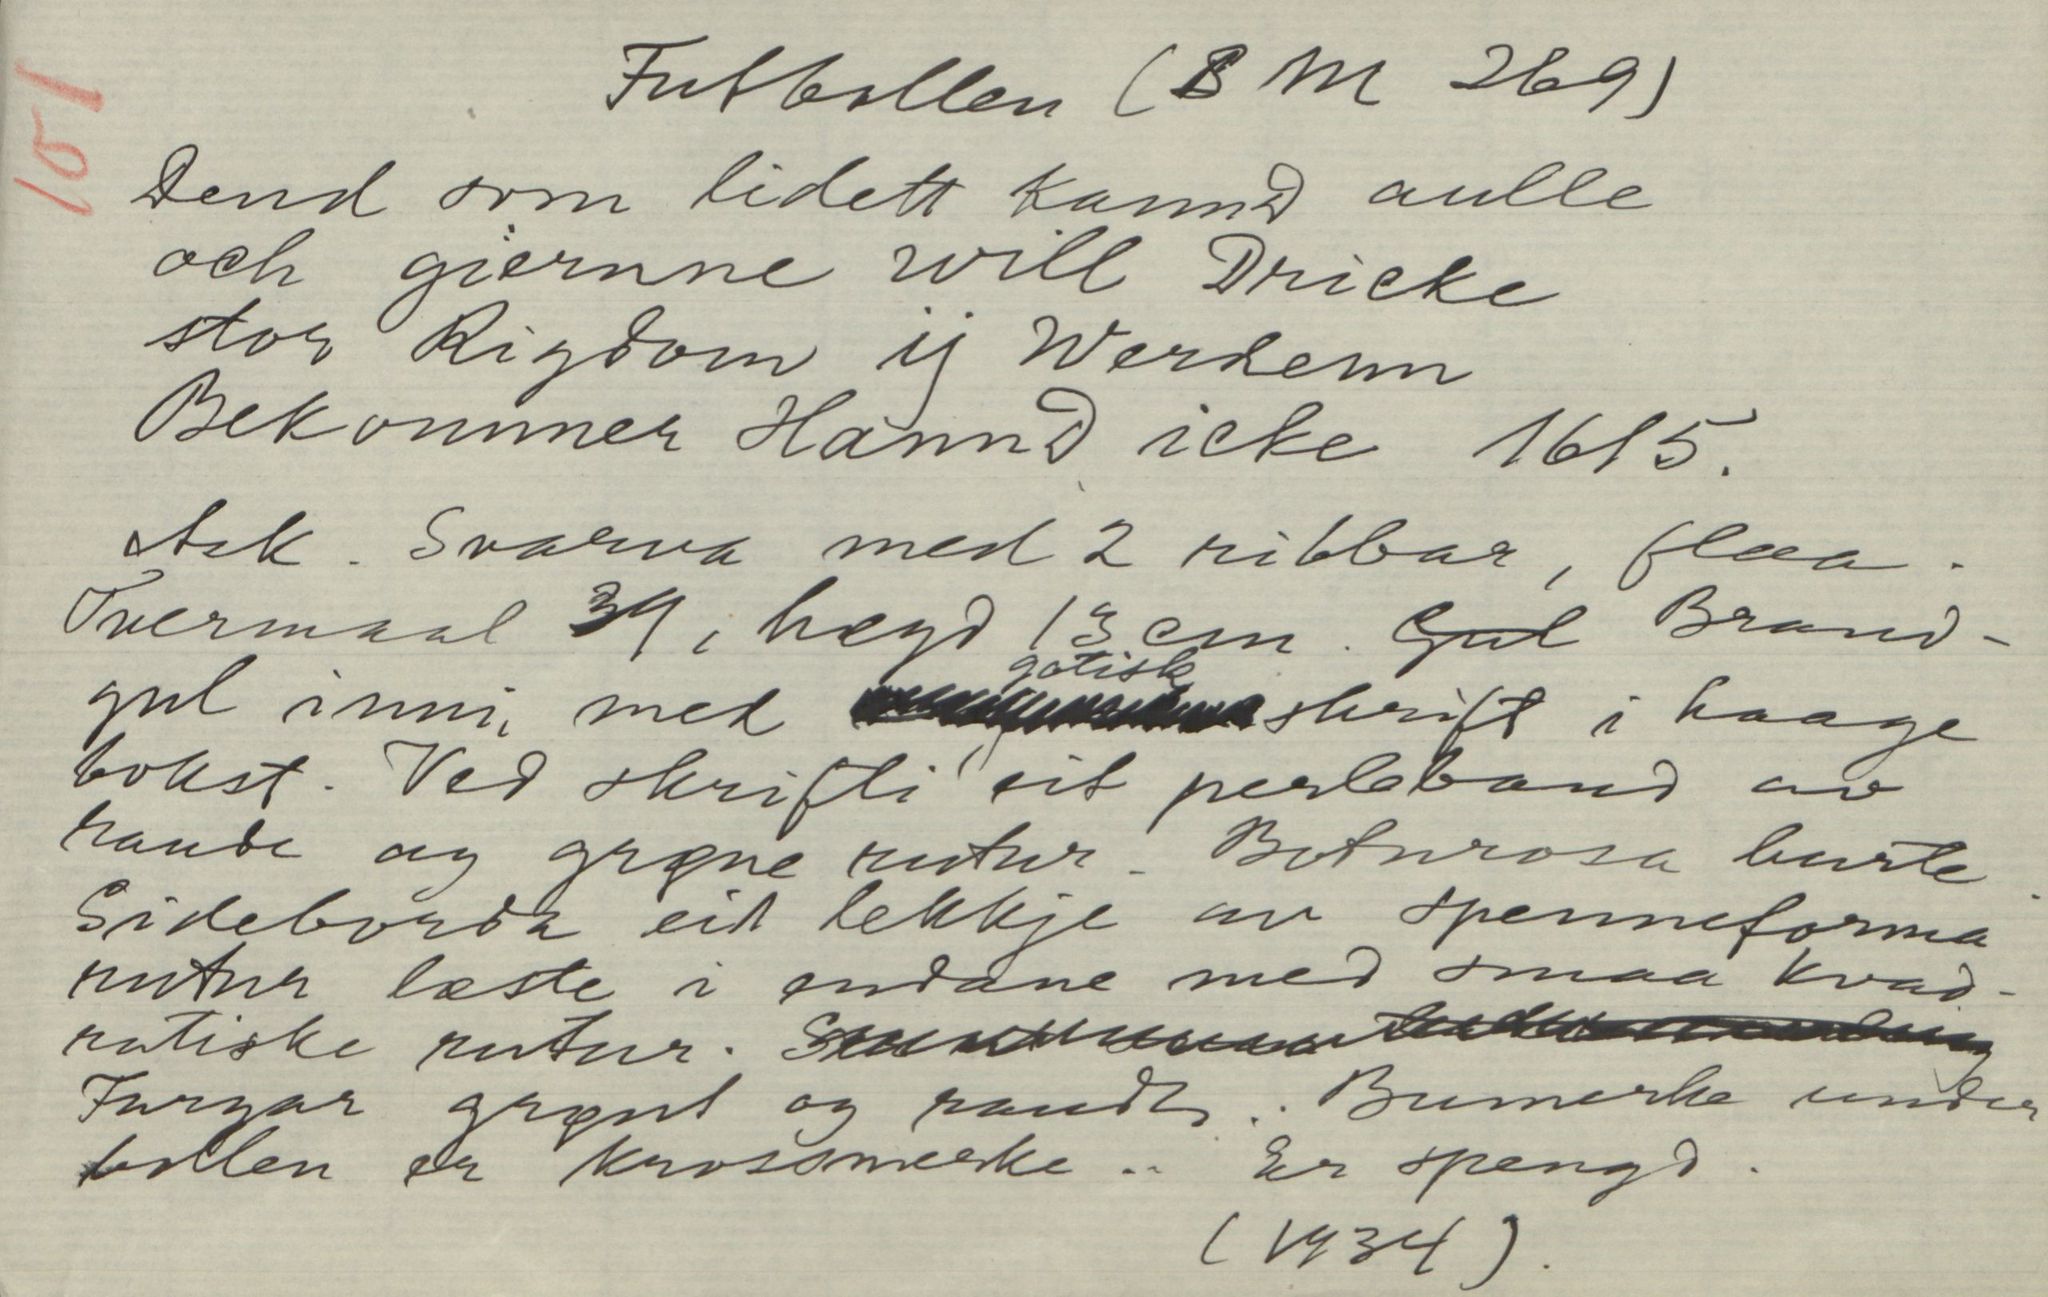 101
Futbollen (BM 269)
Dend som lidett kannd aulle
och giernne will Dricke
stor Rigdom ij Werdenn
Bekommer Hannd icke 1615.
Ask. Svarva med 2 ribbar, flaa.
Tvermaal 34, høgd 13 cm. Gul Brand-
gul inni, med gotisk skrift i haage
bokst. Ved skrifti eit perleband av
raude og grøne rutur. Boturosa burte.
Sideborda eit lekkje av spenneforma
rutur læste i endane med smaa kvad-
ratiske rutur.
Furgar grønt og raudt. Bumerke under
bollen er krossmerke .. Er spengd.
(1934).